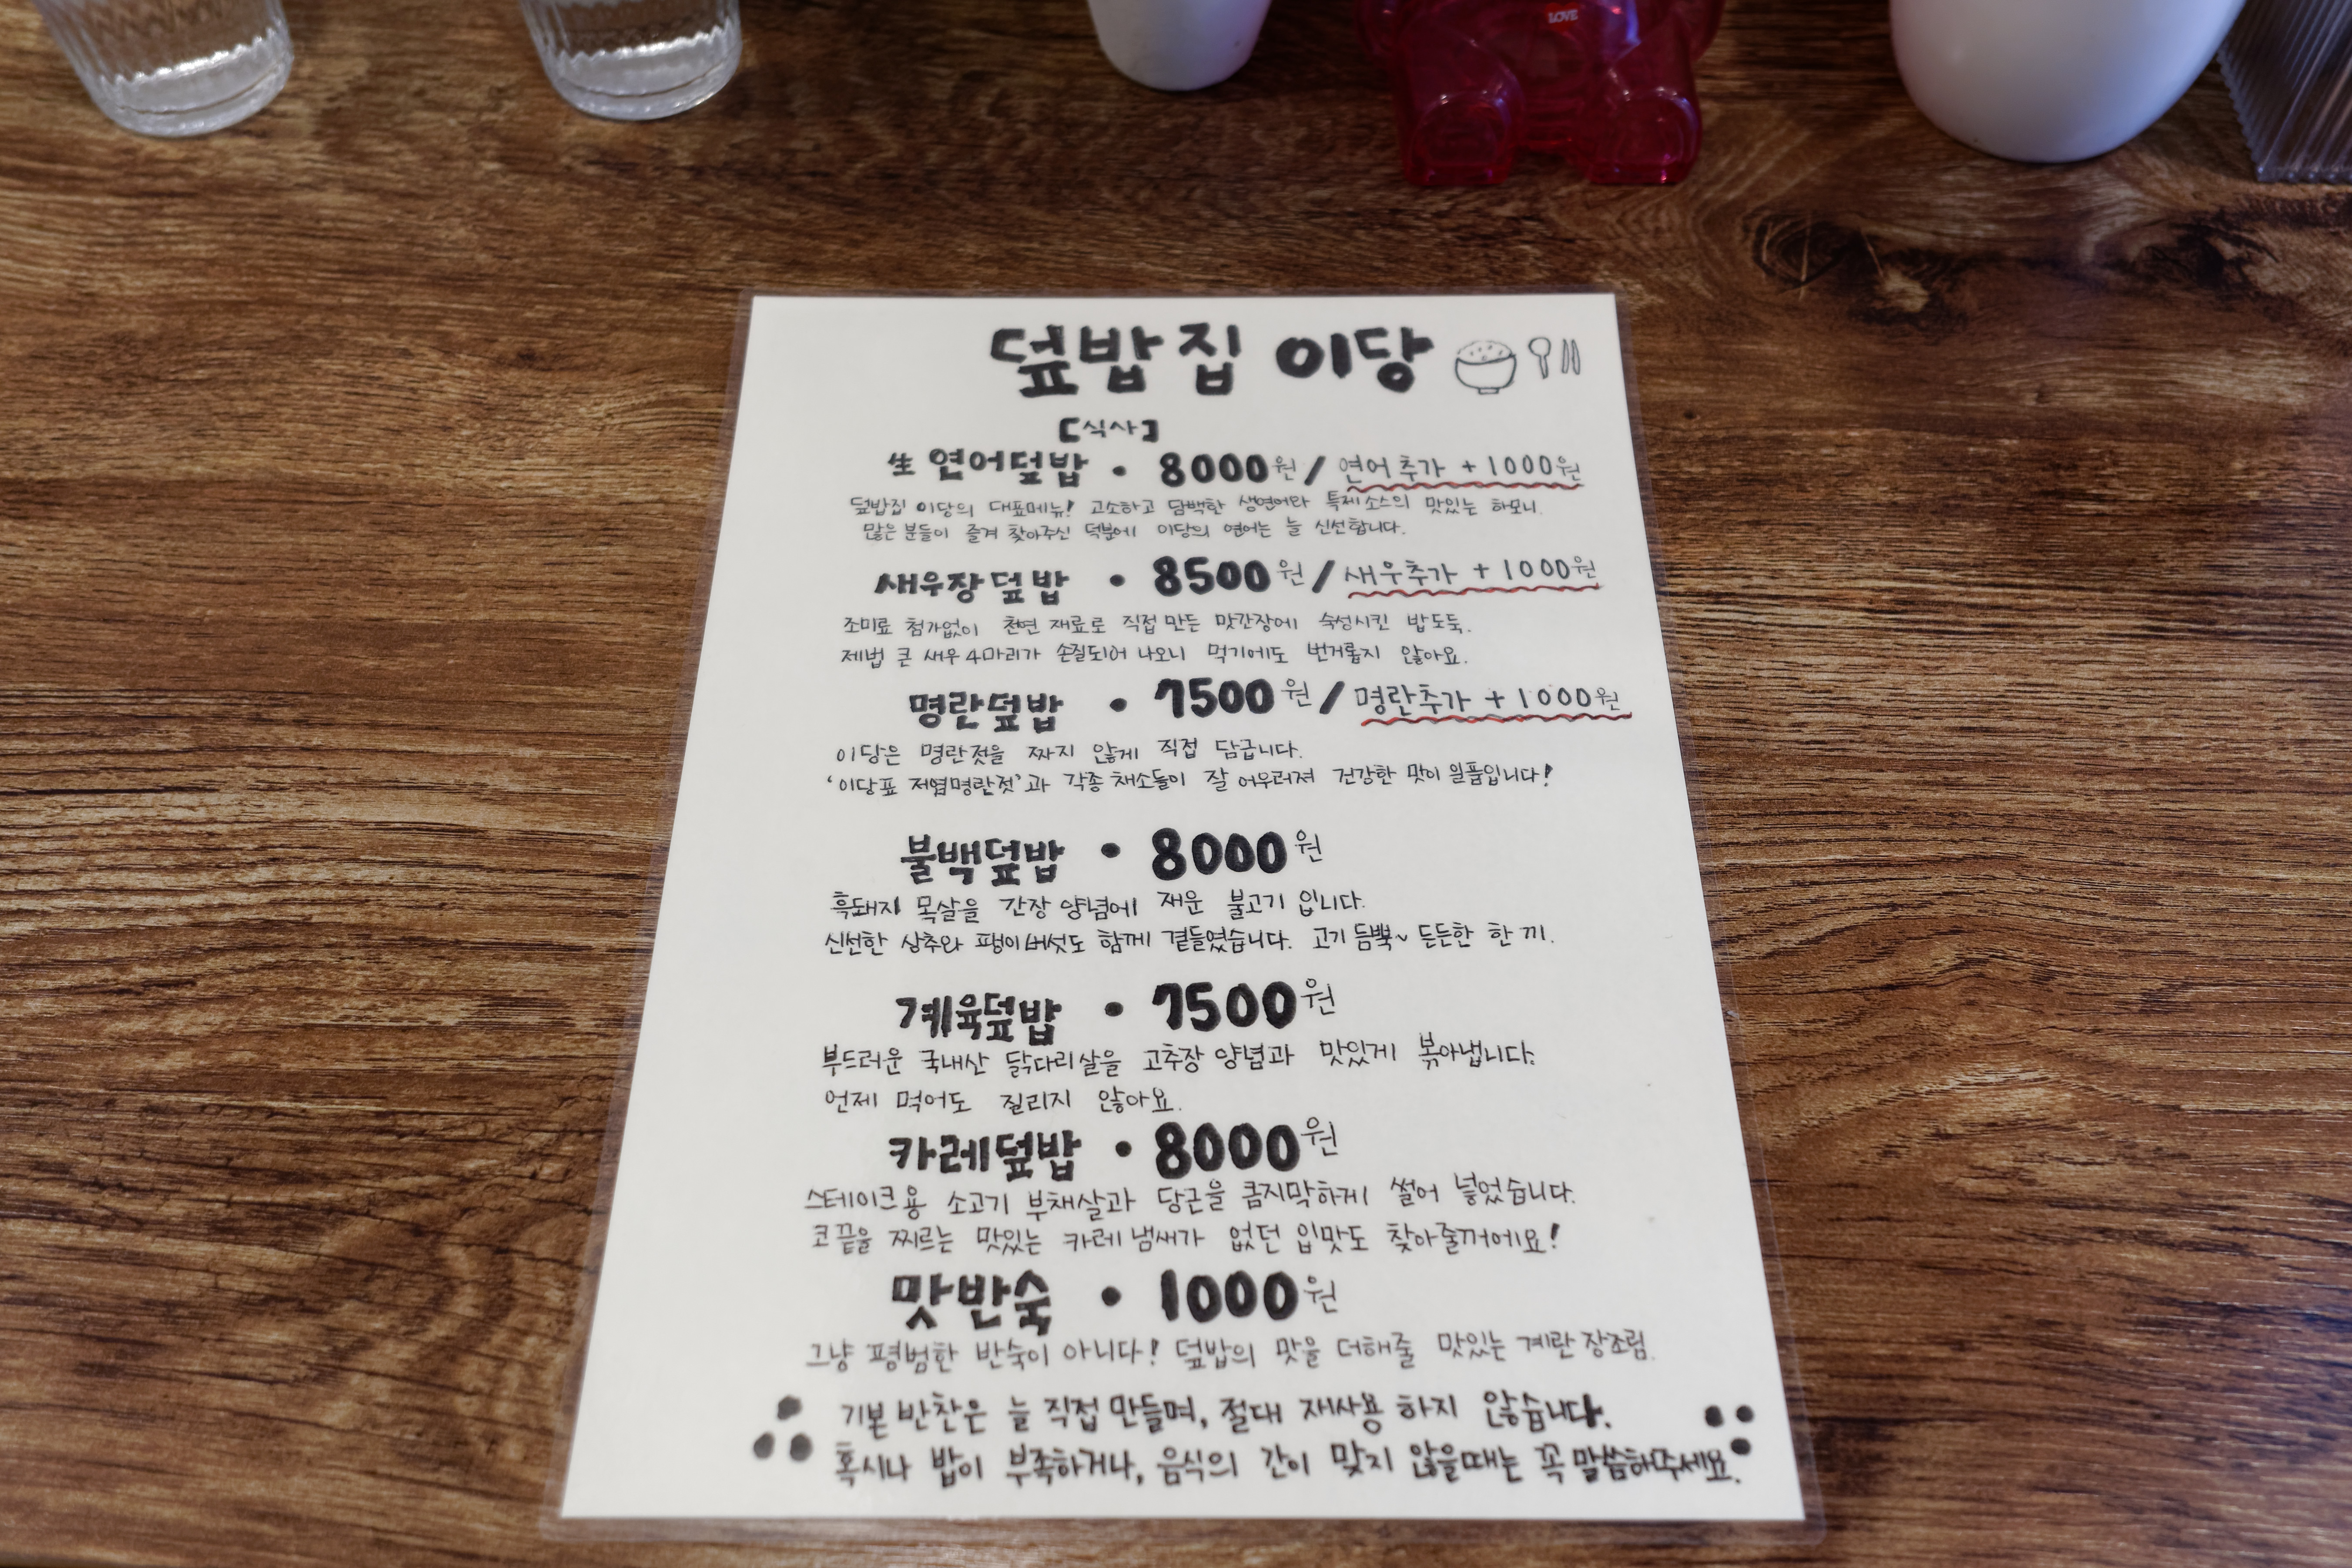 LOVE
덮밥집 이당
[식사]
生 연어덮밥 • 8000원 / 연어추가 +1000원
덮밥집 이당의 대표메뉴! 고소하고 담백한 생연어와 특제소스의 맛있는 하모니.
많은 분들이 즐겨 찾아주신 덕분에 이당의 연어는 늘 신선합니다.
새우장덮밥 • 8500원 / 새우추가 +1000원
조미료 첨가없이 천연 재료로 직접 만든 맛간장에 숙성시킨 밥도둑.
제법 큰 새우 4마리가 손질되어 나오니 먹기에도 번거롭지 않아요.
명란덮밥 • 7500원 / 명란추가 +1000원
이당은 명란젓을 짜지 않게 직접 담급니다.
'이당표 저염명란젓'과 각종 채소들이 잘 어우러져 건강한 맛이 일품입니다!
불백덮밥 • 8000원
흑돼지 목살을 간장 양념에 재운 불고기 입니다.
신선한 상추와 팽이버섯도 함께 곁들였습니다. 고기 듬뿍~ 든든한 한 끼.
계육덮밥 • 7500원
부드러운 국내산 닭다리살을 고추장 양념과 맛있게 볶아냅니다.
언제 먹어도 질리지 않아요.
카레덮밥 • 8000원
스테이크용 소고기 부채살과 당근을 큼지막하게 썰어 넣었습니다.
코끝을 찌르는 맛있는 카레 냄새가 없던 입맛도 찾아줄꺼에요!
맛반숙 • 1000원
그냥 평범한 반숙이 아니다! 덮밥의 맛을 더해줄 맛있는 계란 장조림.
기본 반찬은 늘 직접 만들며, 절대 재사용 하지 않습니다.
혹시나 밥이 부족하거나, 음식의 간이 맞지 않을때는 꼭 말씀해주세요.